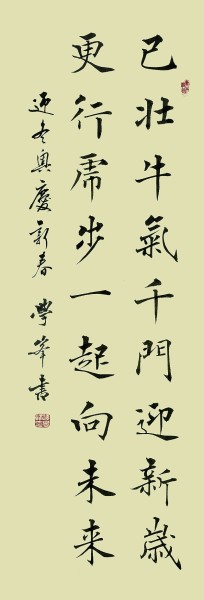 已壮牛氣千門迎新歲
更行虎步一起向未来
迎冬奥慶新春 學峰書